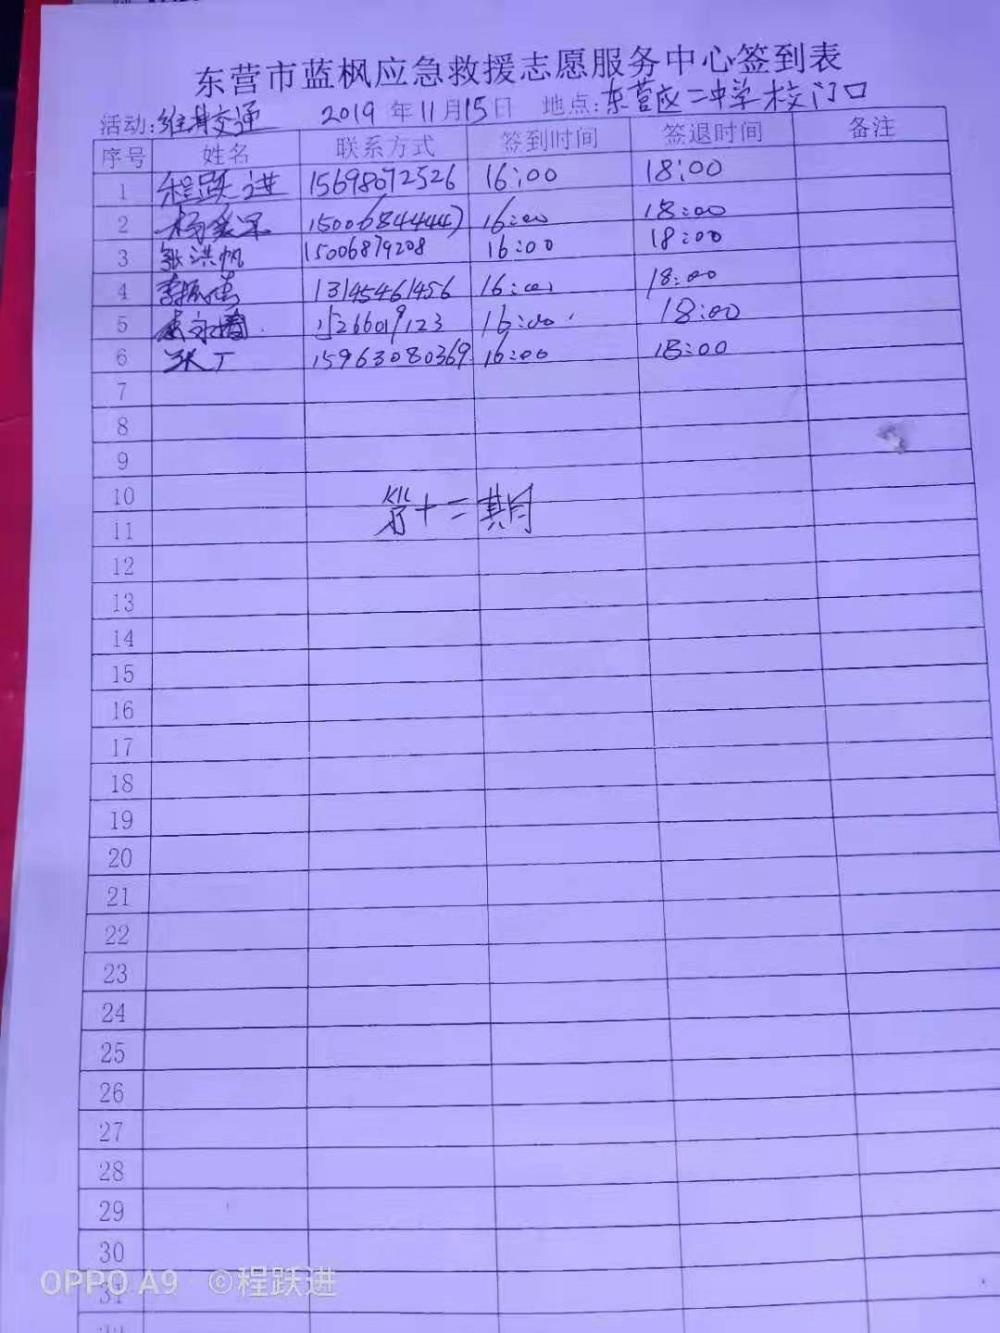 东营市蓝枫应急救援志愿服务中心签到表
活动:维持交通 2019 年 11 月 15 日 地点:东营区二中学校门口
序号 姓名 联系方式 签到时间 签退时间 备注
1 程跃进 15698072526 16:00 18:00
2 15006844447 16:00 18:00
3 张洪帆 15006879208 16:00 18:00
4 13145461456 16:00 18:00
5 15266019123 16:00 18:00
6 张丁 15963080369 16:00 18:00
7
8
9
10
第十二期
11
12
13
14
15
16
17
18
19
20
21
22
23
24
25
26
27
28
29
30
OPPO A9 ©程跃进
31